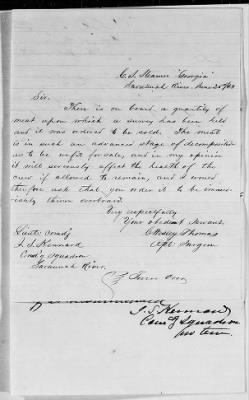 C. S. Steamer "Georgia"
Savannah River, June 25th/63
Sir,
There is on board a quantity of
meat upon which a survey has been held
and it was ordered to be sold. The meat
is in such an advanced stage of decomposition
as to be unfit for sale, and in my opinion
it will seriously affect the health of the
crew if allowed to remain, and I would
therefore ask that you order it to be immed-
iately thrown overboard.
Very respectfully
Your obedient Servant
Wesley Thomas
Asst Surgeon
Lieut Comdg
J. S. Kennard
Comdg Squadron
Savannah River.
Turn Over
J. S. Kennard
Comdg Squadron
pro tem.